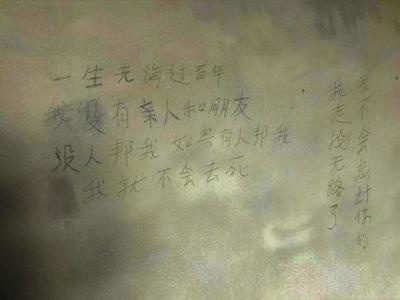 一生无海过百年
我没有亲人和朋友
没人邦我 如果有人邦我
我就不会去死
我不会忘计你的
我走投无路了